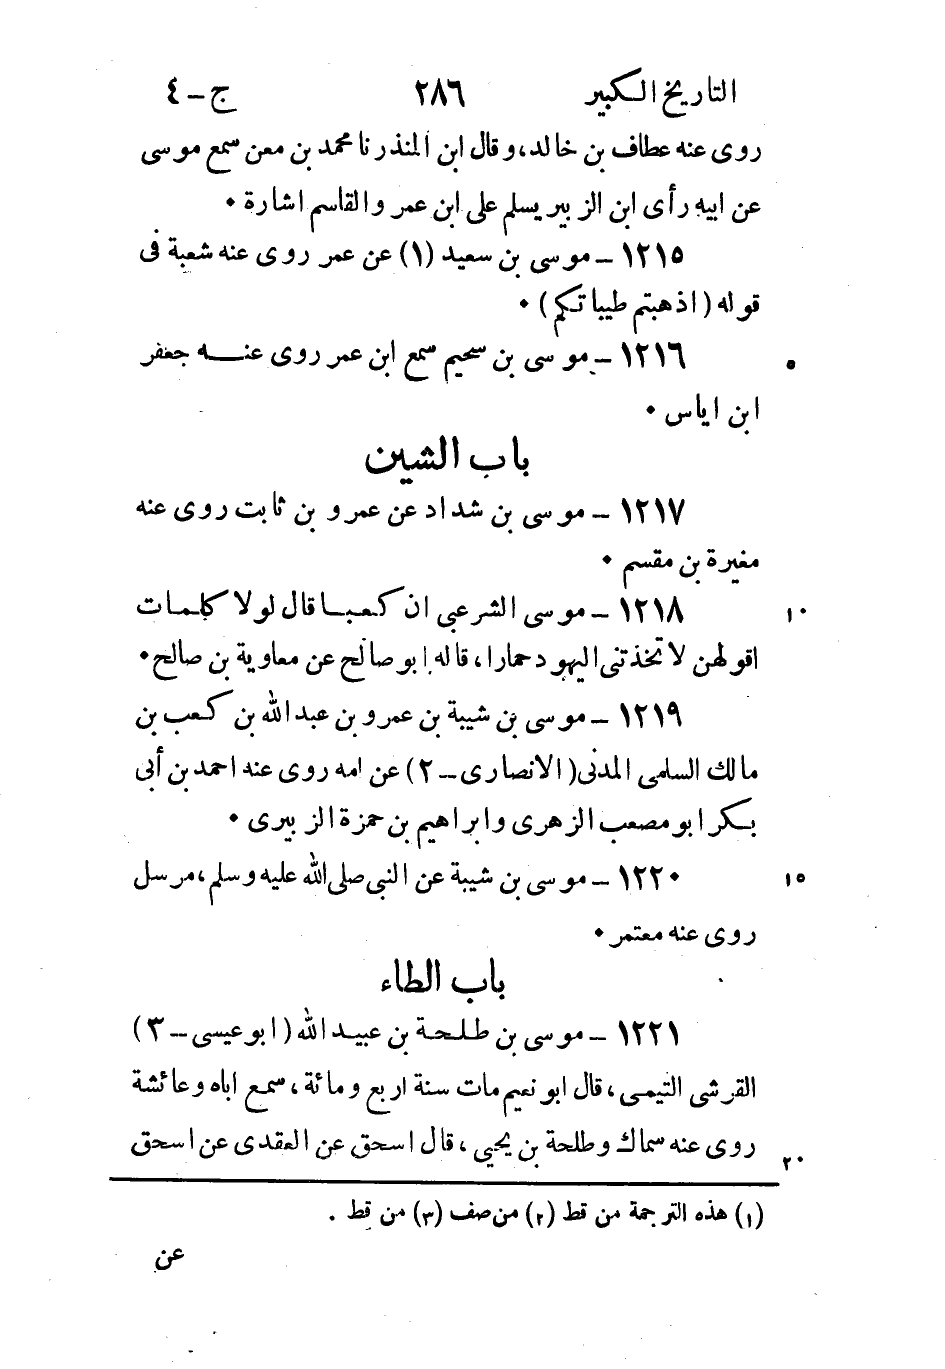 التاريخ الكبير ٢٨٦ ج-٤
روى عنه عطاف بن خالد، وقال ابن المنذر نا محمد بن معن سمع موسى
عن ابيه رأى ابن الزبير يسلم على ابن عمر والقاسم اشارة •
١٢١٥ - موسى بن سعيد (١) عن عمر روى عنه شعبة فى
قوله (اذهبتم طيباتكم) •
١٢١٦ - موسى بن سحيم سمع ابن عمر روى عنه جعفر ٥
ابن اياس •
باب الشين
١٢١٧ - موسى بن شداد عن عمرو بن ثابت روى عنه
مغيرة بن مقسم •
١٢١٨ - موسى الشرعبي ان كعبا قال لولا كلمات ١٠
اقولهن لاتخذتنى اليهود حمارا، قاله ابو صالح عن معاوية بن صالح •
١٢١٩ - موسى بن شيبة بن عمرو بن عبد الله بن كعب بن
مالك السلمى المدنى (الانصارى - ٢) عن امه روى عنه احمد بن أبى
بكر ابو مصعب الزهرى وابراهيم بن حمزة الزبيرى •
١٢٢٠ - موسى بن شيبة عن النبي صلى الله عليه وسلم، مرسل ١٥
روى عنه معتمر •
باب الطاء
١٢٢١ - موسى بن طلحة بن عبيد الله (ابو عيسى - ٣)
القرشى التيمى، قال ابو نعيم مات سنة اربع ومائة، سمع اباه وعائشة
روى عنه سماك وطلحة بن يحيى، قال اسحق عن العقدى عن اسحق ٢٠
(١) هذه الترجمة من قط (٢) من صف (٣) من قط .
عن